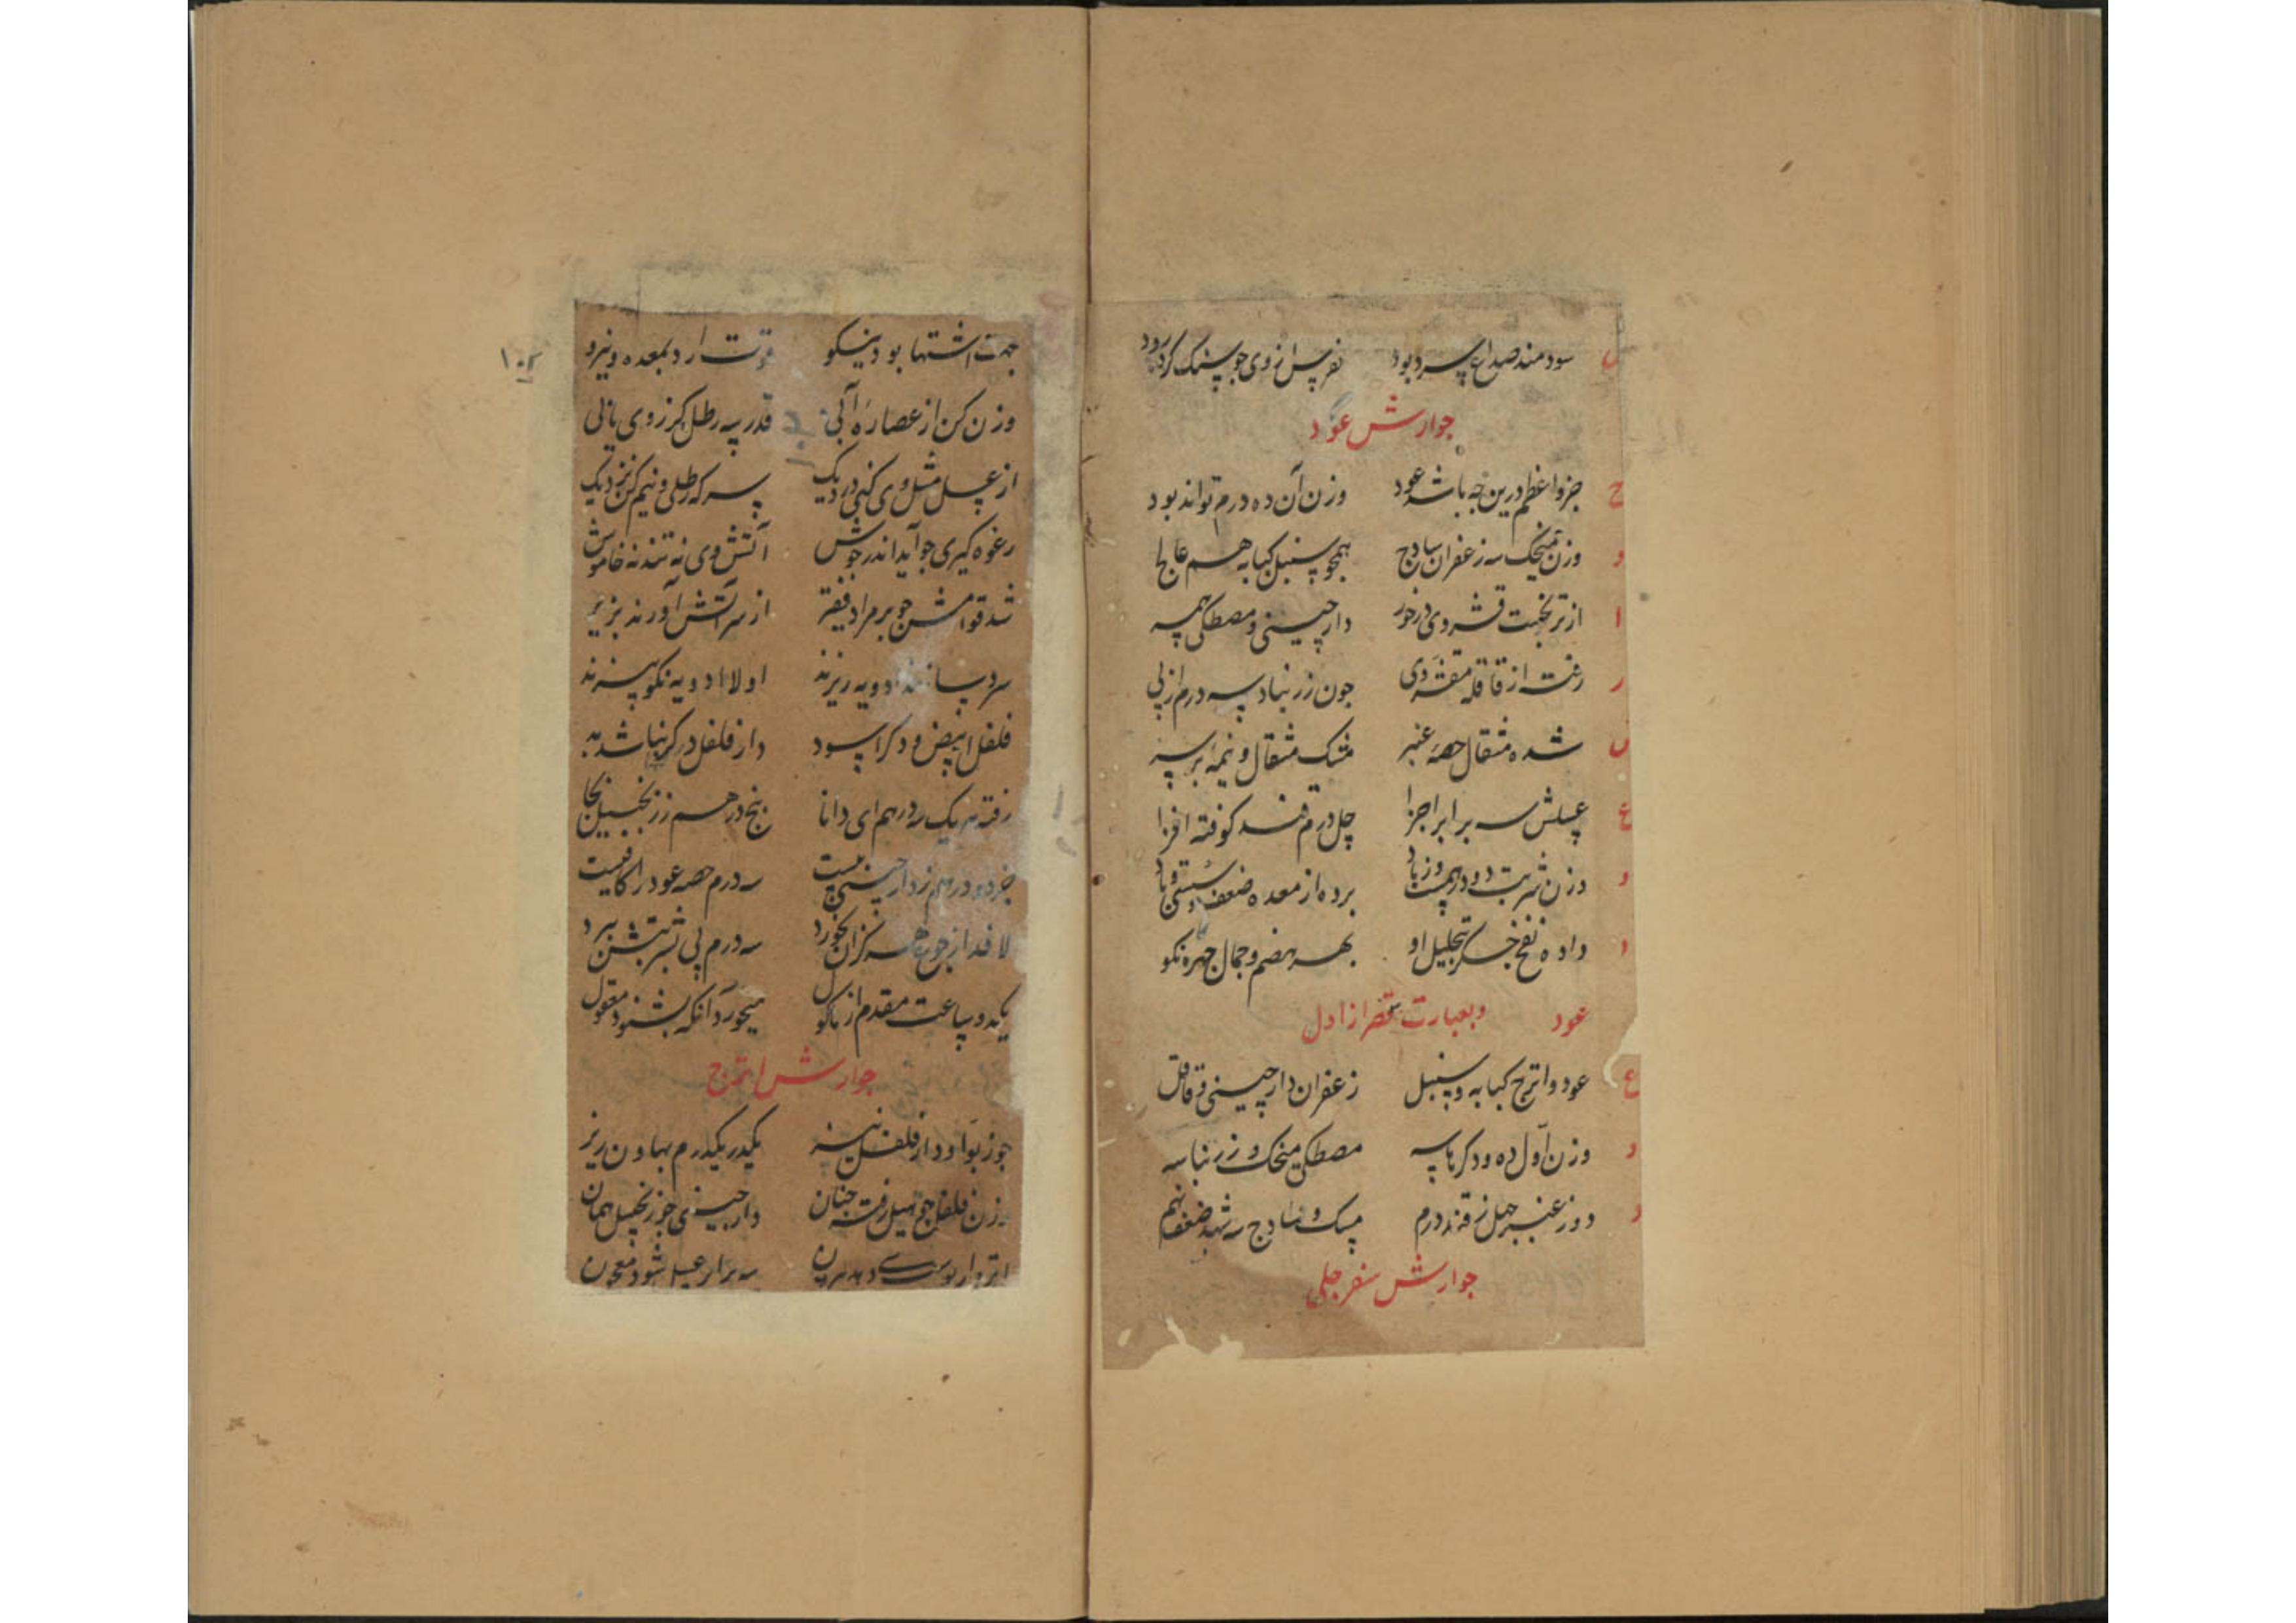 سودمند صداع سرد بود نقرس از وی چو سنگ کردد رود
جوارش عود
ح جزو اعظم درین چه باشد عود وزن آن ده درم تواند بود
و وزن میخک سه زعفران سادج همچو سنبل کبابه هم عالج
ا از ترنجست قشر وی درخور دارچینی و مصطکی همه
ر رفت از قاقله مقشر دی چون زرنباد سه درم از پی
شده مثقال حصه عنبر مشک مثقال و نیمه
ع عسلش سه برابر اجزا چل درم قند کوفته افزا
و وزن شربت دو درهمست وزیاد برده از معده ضعف و سستی و باد
ا داده نفع جگر تحلیل او بهر هضم و جمال چهره نکو
عود وبعبارت مختصر از اول
ع عود و اترج کبابه و سنبل زعفران دارچینی و قاقل
و وزن اول ده و دکرها سه مصطکی میخک و زرنبا سه
د دو ز عنبر چهل ز قند درم مسک و سادج سه شهد ضعف بهم
جوارش سفرجلی
۱۰۲
جهت اشتها بود نیکو قوت آرد بمعده و نیرو
وزن کن از عصاره آبی قدر سه رطل کز وی یابی
از عسل مثل وی کنی در دیک سرکه رطلی و نیم کن نزدیک
رغوه کیری چو آید اندر جوش آتش وی نه تند نه خاموش
شد قوامش چو بر مراد فقیر از سر آتش آورند بزیر
سرد سازند ادویه ریزند اولا ادویه نکو بیزند
فلفل ابیض و دکر اسود دار فلفل دکر نباشد بد
رفته هر یک سه درهم ای دانا پنج درهم ز زنجبیل بجا
جز دو درهم ز دارچینی نیست سه درم حصه عود را کافیست
لافد از جوع هر کزان بخورد سه درم پی شربتش ببرد
یکدو ساعت مقدم از ماکول میخورد آنکه بشنود معقول
جوارش اترج
جوز بوا و دار فلفل نیز یکدر یکدرم بهاون ریز
وزن فلفل چو هیل رفت چنان دارچینی چو زنجبیل همان
سه برابر عسل شود معجون